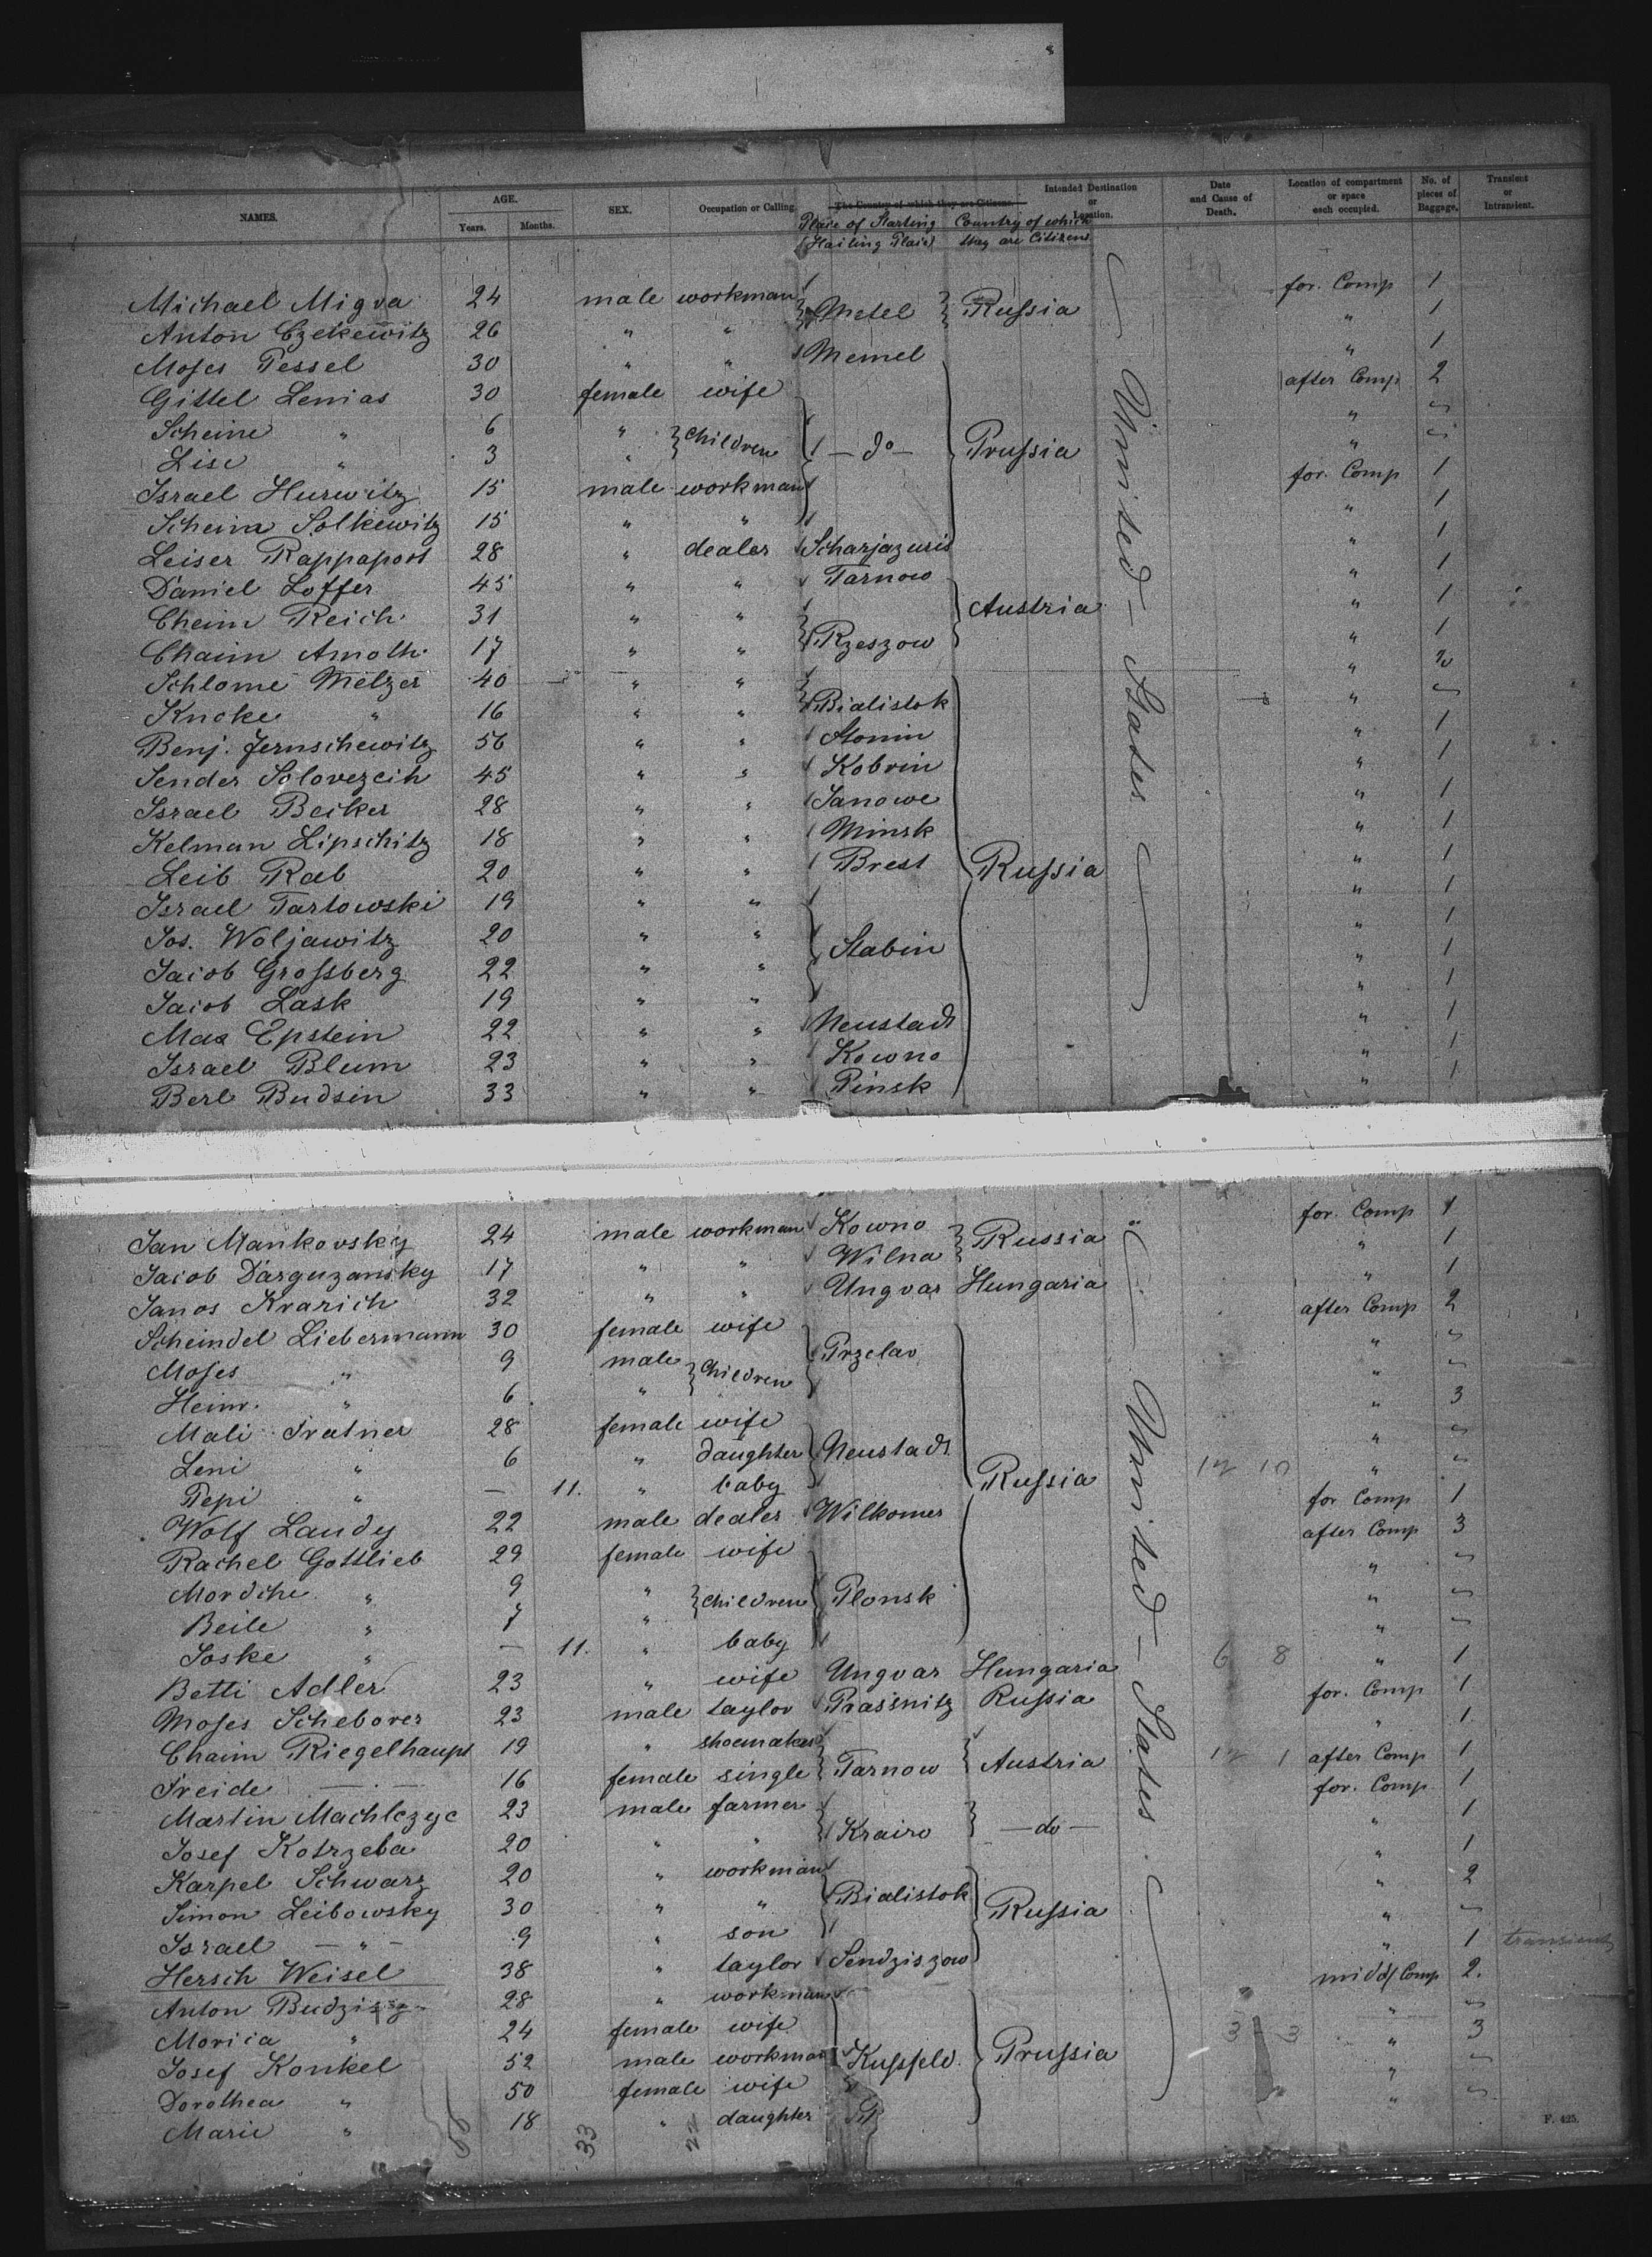 NAMES. AGE. SEX. Occupation or Calling. The Country of which they are Citizens. Intended Destination or Location. Date and Cause of Death. Location of compartment or space each occupied. No. of pieces of Baggage. Transient or Intransient.
Years. Months. Place of Starting (Hailing Place) Country of which they are Citizens
Michael Migva 24 male workman Metel Russia for. Comp 1
Anton Czekewitz 26 " " " 1
Moses Pessel 30 " " Memel " 1
Gittel Lenias 30 female wife after Comp 2
Scheine " 6 " children — do — Prussia "
Lise " 3 " "
Israel Hurwitz 15 male workman for. Comp 1
Scheina Solkewitz 15 " " " 1
Leiser Rappaport 28 " dealer Scharjazuris " 1
Daniel Loffer 45 " " Tarnow " 1
Cheim Reich 31 " " Rzeszow Austria " 1
Chaim Amoth 17 " " " 1
Schlome Melzer 40 " " Bialistok " 2
Knoke " 16 " " "
Benj. Jernschewitz 56 " " Slonin " 1
Sender Solovezcih 45 " " Kobrin " 1
Israel Becker 28 " " Janowe " 1
Kelman Lipschitz 18 " " Minsk " 1
Leib Rab 20 " " Brest Russia " 1
Israel Tartowski 19 " " " 1
Jos. Woljawitz 20 " " Stabin " 1
Jacob Grossberg 22 " " " 1
Jacob Lask 19 " " " 1
Max Epstein 22 " " Neustadt " 1
Israel Blum 23 " " Kowno " 1
Berl Budsin 33 " " Pinsk " 1
United States
Jan Mankovsky 24 male workman Kowno Russia for. Comp 1
Jacob Darguzansky 17 " " Wilna " 1
Janos Krarich 32 " " Ungvar Hungaria " 1
Scheindel Liebermann 30 female wife Przelav after Comp 2
Moses " 9 male children "
Heinr. " 6 " "
Mali Tratner 28 female wife Neustadt " 3
Leni " 6 " daughter "
Pepi " — 11. " baby Russia "
Wolf Landy 22 male dealer Wilkomer for Comp 1
Rachel Gottlieb 29 female wife Plonsk after Comp 3
Mordche " 9 " children "
Beile " 7 " "
Joske " — 11. " baby "
Betti Adler 23 " wife Ungvar Hungaria 6 8 " 1
Moses Scheborer 23 male taylor Prassnitz Russia for. Comp 1
Chaim Riegelhaupt 19 " shoemaker Tarnow Austria " 1
Freide — " — 16 female single after Comp 1
Martin Machlczyc 23 male farmer Krairo — do — for. Comp 1
Josef Kotrzeba 20 " " " 1
Karpel Schwarz 20 " workman Bialistok Russia " 1
Simon Leibowsky 30 " " " 2
Israel — " — 9 " son "
Hersch Weisel 38 " taylor Sendziszow " 1 transient
Anton Budzisz 28 " workman Kussfeld Prussia midd/Comp 2.
Moricia " 24 female wife "
Josef Konkel 52 male workman 3 3 " 3
Dorothea " 50 female wife "
Marie " 18 " daughter "
United States
33 22
F. 425.